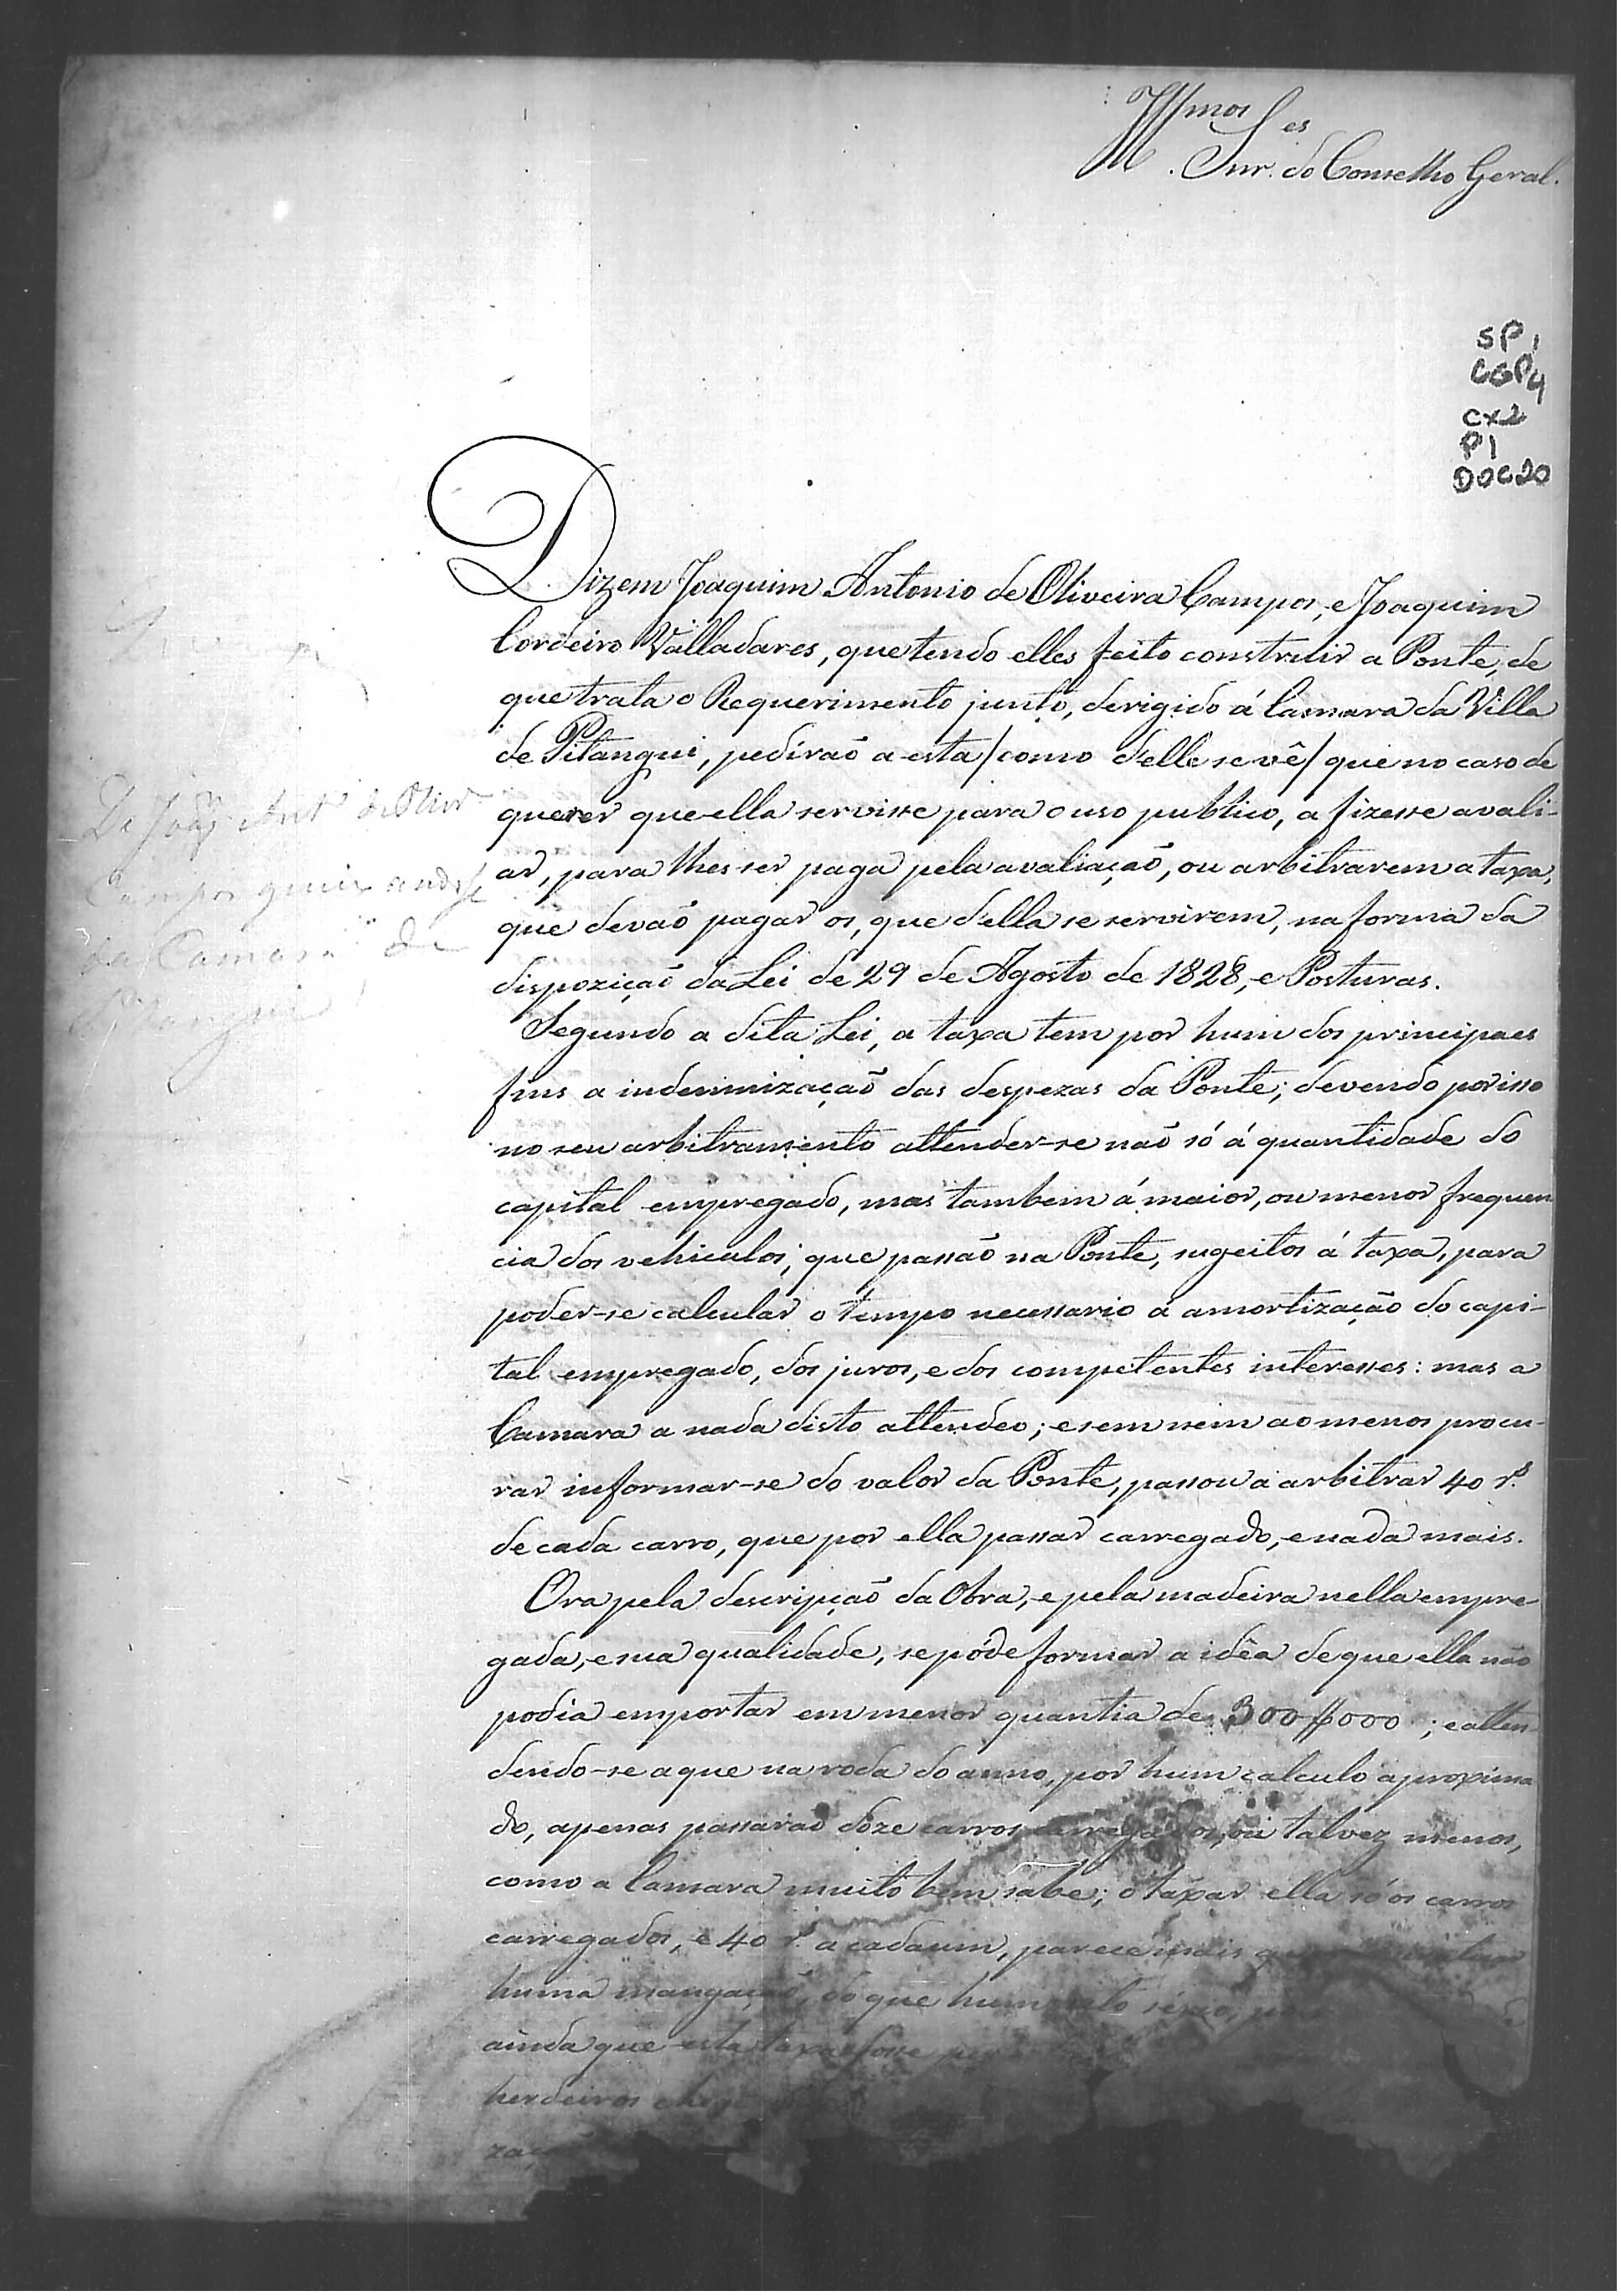 Illmos Snr.es do Conselho Geral.
SP1
CGP4
CX2
P1
DOC20
Dizem Joaquim Antonio de Oliveira Campos, e Joaquim
Cordeiro Valladares, que tendo elles feito construir a Ponte, de
que trata o Requerimento junto, derigido á Camara da Villa
de Pitangui, pedirão a esta / como d'elle se vê / que no caso de
querer que ella servisse para o uso publico, a fizesse avali-
ar, para lhes ser paga pela avaliação, ou arbitrarem a taxa,
que devão pagar os, que d'ella se servirem, na forma da
dispozição da Lei de 29 de Agosto de 1828, e Posturas.
Segundo a dita Lei, a taxa tem por hum dos principaes
fins a indemnização das despezas da Ponte; devendo por isso
no seu arbitramento attender-se não só á quantidade do
capital empregado, mas tambem á maior, ou menor frequen
cia dos vehiculos, que passão na Ponte, sugeitos á taxa, para
poder-se calcular o tempo necessario á amortização do capi-
tal empregado, dos juros, e dos competentes interesses: mas a
Camara a nada disto attendeo; e sem nem ao menos procu-
rar informar-se do valor da Ponte, passou a arbitrar 40 r.s
de cada carro, que por ella passar carregado, e nada mais.
Ora pela descripção da Obra, e pela madeira nella empre-
gada, e sua qualidade, se póde formar a idêa de que ella não
podia emportar em menor quantia de 300$000; e atten
dendo-se a que na roda do anno, por hum calculo aproxima
do, apenas passarão doze carros carregados, ou talvez menos,
como a Camara muito bem sabe; o taxar ella só os carros
carregados, e 40 r.s a cada um, parece mais
huma mangação, do que hum acto serio,
ainda que esta taxa fosse
herdeiros
De Joaq.m Ant.o de Olivr.a
Campos queixando-se
da Camara de
Pitangui